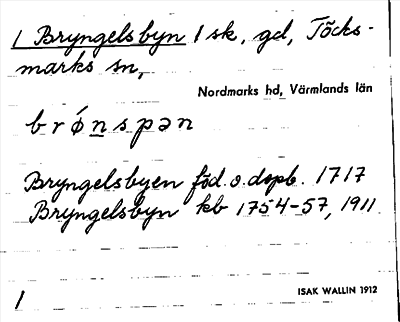 1 Bryngelsbyn 1 sk, gd, Töcks-
marks sn,
Nordmarks hd, Värmlands län
brǿnspən
Bryngelsbyen föd. o. dopb. 1717
Bryngelsbyn kb 1754-57, 1911
1
ISAK WALLIN 1912